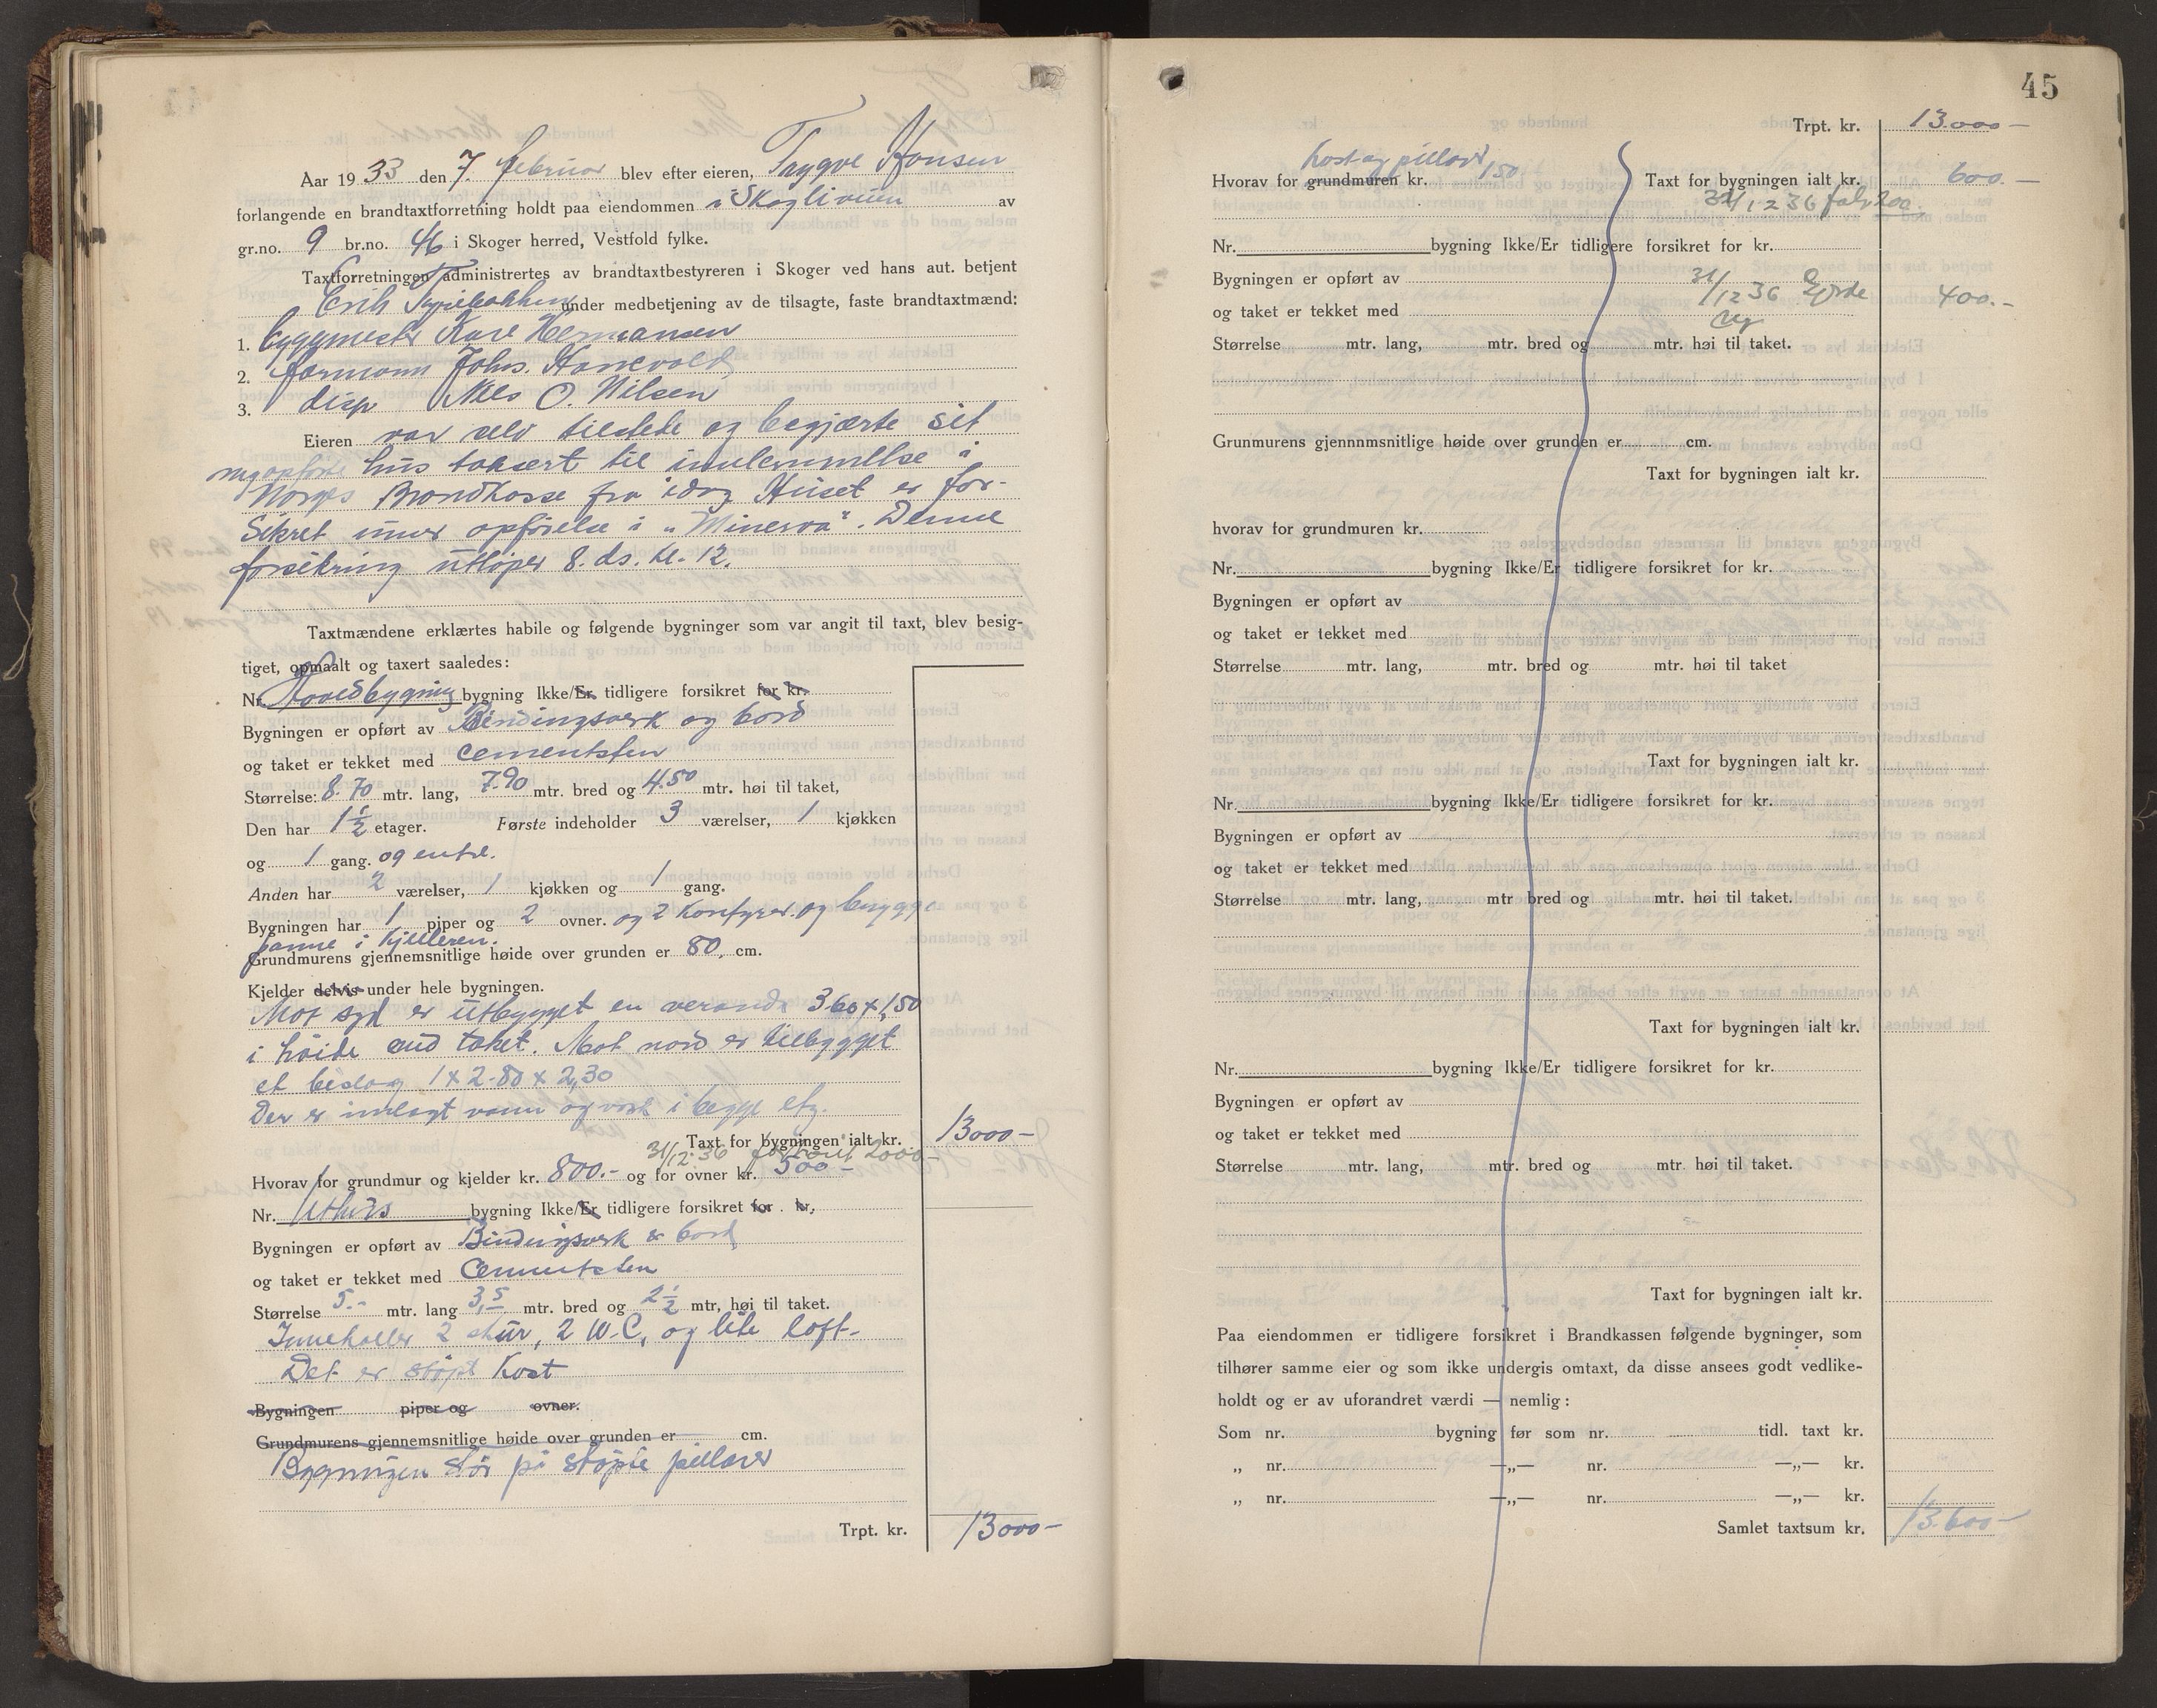 Aar 1933 den 7. februar blev efter eieren, Trygve Hansen
forlangende en brandtaxtforretning holdt paa eiendommen i Skogliveien av
gr.no. 9 br.no. 46 i Skoger herred, Vestfold fylke.
Taxtforretningen administrertes av brandtaxtbestyreren i Skoger ved hans aut. betjent
Erik under medbetjening av de tilsagte, faste brandtaxtmænd:
1. byggmester Kare Hermansen
2. formann Johs. Hanevold
3. disp Nils O. Nilsen
Eieren var selv tilstede og begjærte sit
nyopførte hus taksert til innlemmelse i
Norges Brandkasse fra idag Huset er for-
sikret under opførelse i „Minerva". Denne
forsikring utløper 8. ds. kl. 12.
Taxtmændene erklærtes habile og følgende bygninger som var angit til taxt, blev besig-
tiget, opmaalt og taxert saaledes:
Nr. Hovedbygning bygning Ikke/Er tidligere forsikret for kr.
Bygningen er opført av Bindingsverk og bord
og taket er tekket med cementsten
Størrelse: 8.70 mtr. lang, 7.90 mtr. bred og 4.50 mtr. høi til taket,
Den har 1½ etager. Første indeholder 3 værelser, 1 kjøkken
og 1 gang. og entré.
Anden har 2 værelser, 1 kjøkken og 1 gang.
Bygningen har 1 piper og 2 ovner. og 2 Komfyrer. og brygge
panne i Kjelleren.
Grundmurens gjennemsnitlige høide over grunden er 80, cm.
Kjelder delvis under hele bygningen.
Mot syd er utbygget en veranda 3.60 x 1,50
i høide med taket. Mot nord er tilbygget
et bislag 1 x 2.80 x 2,30
Der er innlagt vann og vask i begge etg.
Taxt for bygningen ialt kr. 13000-
31/12.36 forhøiet 2000-
Hvorav for grundmur og kjelder kr. 800.- og for ovner kr. 500-
Nr. Uthus bygning Ikke/Er tidligere forsikret for kr.
Bygningen er opført av Bindingsverk & bord
og taket er tekket med Cementsten
Størrelse 5.- mtr. lang 3,5 mtr. bred og 2½ mtr, høi til taket.
Inneholder 2 skur, 2 W.C, og lite loft-
Det er støpt Kost
Bygningen piper og ovner.
Grundmurens gjennemsnitlige høide over grunden er cm.
Bygningen står på støpte pillarer
Trpt. kr. 13000-
45
Trpt. kr. 13.000-
kost og pillarer
Hvorav for grundmuren kr. 150 Taxt for bygningen ialt kr. 600.-
31/12 36 200.
Nr. bygning Ikke/Er tidligere forsikret for kr.
Bygningen er opført av 31/12 36 400.-
og taket er tekket med
Størrelse mtr. lang, mtr. bred og mtr. høi til taket.
Grunmurens gjennnmsnitlige høide over grunden er cm.
Taxt for bygningen ialt kr.
hvorav for grundmuren kr.
Nr. bygning Ikke/Er tidligere forsikret for kr.
Bygningen er opført av
og taket er tekket med
Størrelse mtr. lang, mtr. bred og mtr. høi til taket
Taxt for bygningen ialt kr.
Nr. bygning Ikke/Er tidligere forsikret for kr.
Bygningen er opført av
og taket er tekket med
Størrelse mtr. lang, mtr bred og mtr. høi til taket.
Taxt for bygningen ialt kr.
Nr. bygning Ikke/Er tidligere forsikret for kr.
Bygningen er opført av
og taket er tekket med
Størrelse mtr. lang, mtr. bred og mtr. høi til taket.
Taxt for bygningen ialt kr.
Paa eiendommen er tidligere forsikret i Brandkassen følgende bygninger, som
tilhører samme eier og som ikke undergis omtaxt, da disse ansees godt vedlike-
holdt og er av uforandret værdi — nemlig:
Som nr. bygning før som nr. tidl. taxt kr.
„ nr. —„— nr. —„— kr.
„ nr. —„— nr. —„— kr.
Samlet taxtsum kr. 13.600-